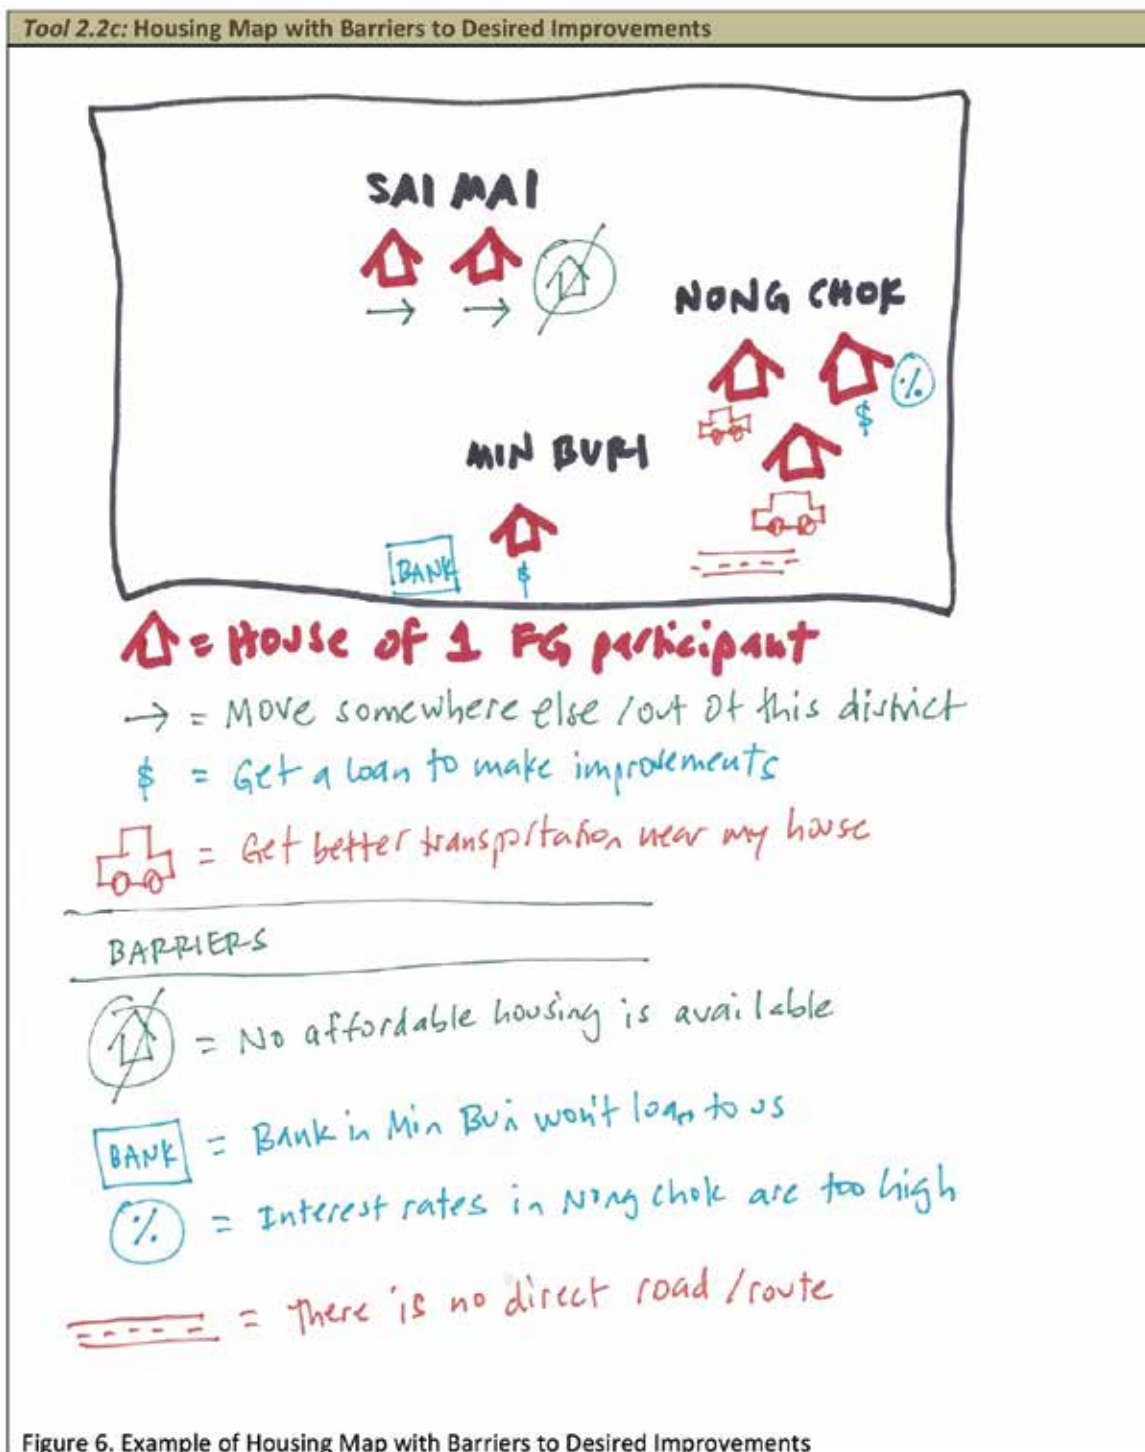 Tool 2.2c: Housing Map with Barriers to Desired Improvements
SAI MAI
NONG CHOK
%
$
MIN BURI
BANK
$
= House of 1 FG participant
→ = Move somewhere else / out of this district
$ = Get a loan to make improvements
= Get better transportation near my house
BARRIERS
= No affordable housing is available
BANK = Bank in Min Buri won't loan to us
% = Interest rates in Nong Chok are too high
= There is no direct road / route
Figure 6. Example of Housing Map with Barriers to Desired Improvements